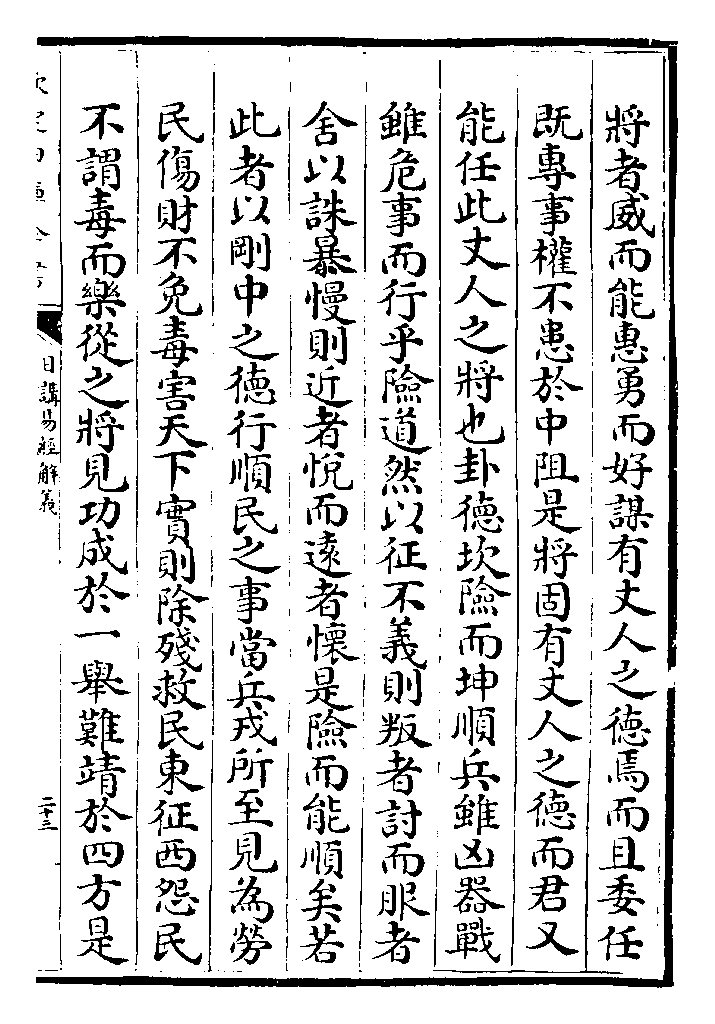 將者威而能惠勇而好謀有丈人之德焉而且委任
既專事權不患於中阻是將固有丈人之德而君又
能任此丈人之將也卦德坎險而坤順兵雖凶器戰
雖危事而行乎險道然以征不義則叛者討而服者
舍以誅暴慢則近者悅而遠者懷是險而能順矣若
此者以剛中之德行順民之事當兵戎所至見為勞
民傷財不免毒害天下實則除殘救民東征西怨民
不謂毒而樂從之將見功成於一舉難靖於四方是
日講易經解義
二十三